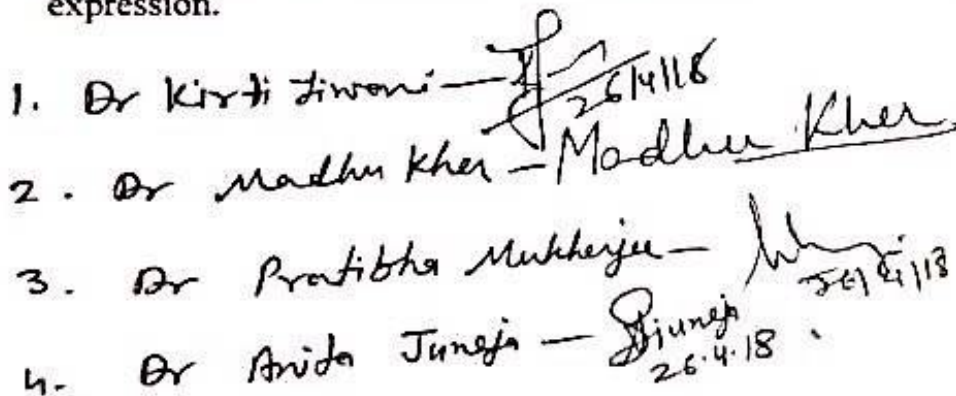 expression.
1. Dr Kirti Tiwari - 26/4/18
2. Dr Madhu Kher - Madhu Kher
3. Dr Pratibha Mukherjee - 26/4/18
4. Dr Anita Juneja - Sjuneja
26.4.18